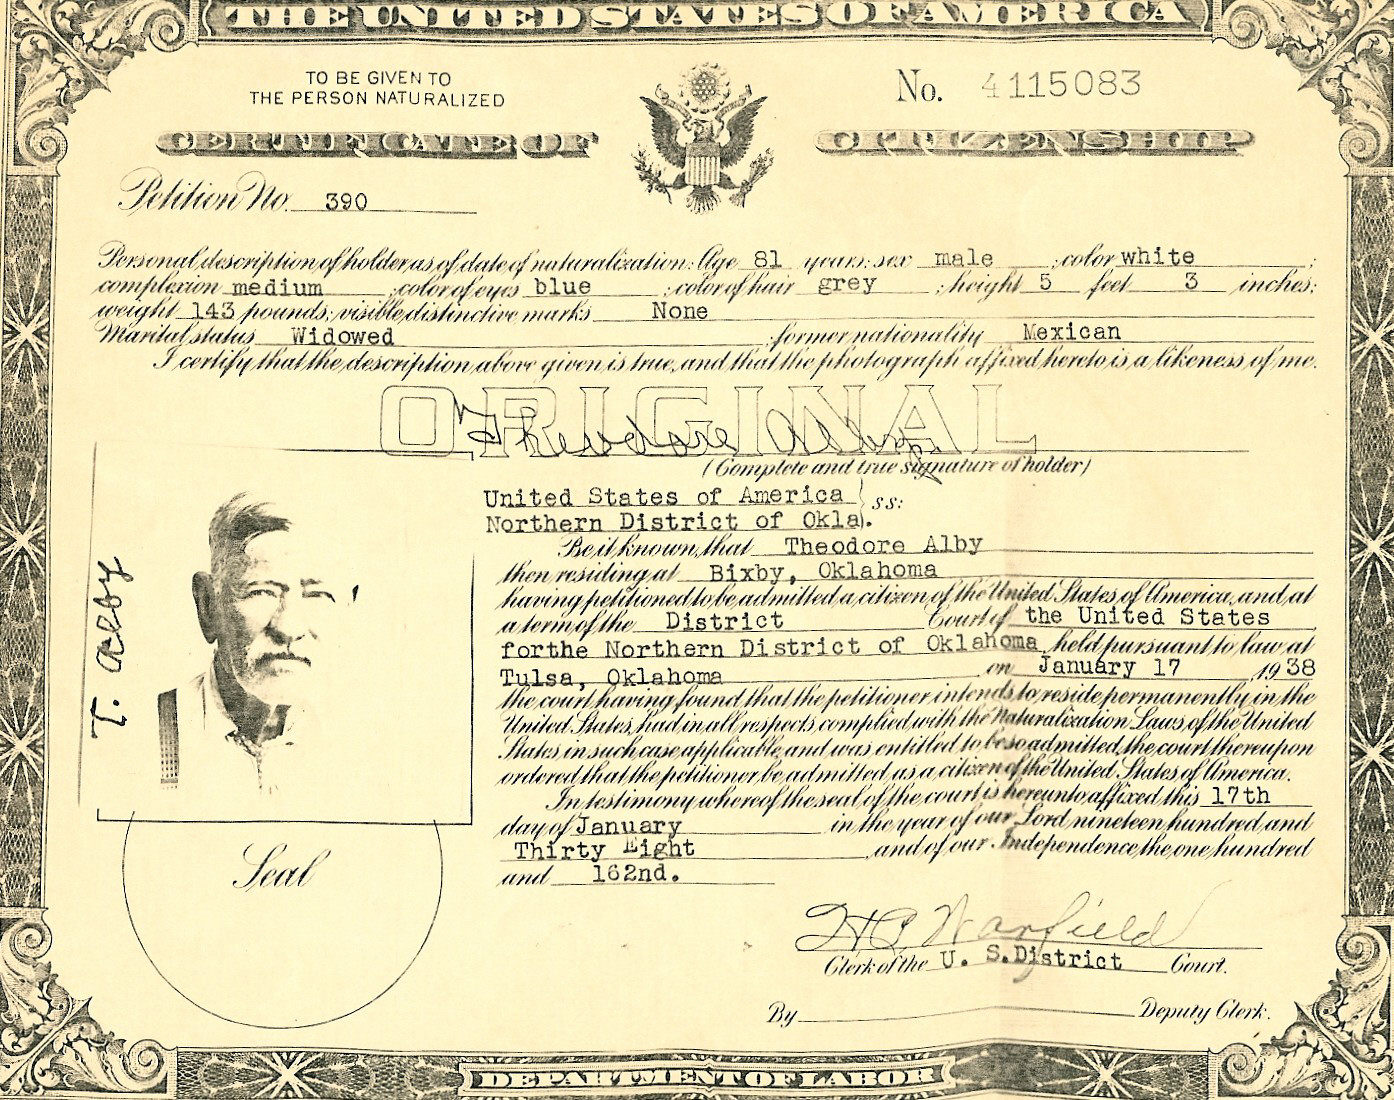 THE UNITED STATES OF AMERICA
TO BE GIVEN TO
THE PERSON NATURALIZED
No. 4115083
CERTIFICATE OF CITIZENSHIP
Petition No. 390
Personal description of holder as of date of naturalization: Age 81 years; sex male ; color white ;
complexion medium ; color of eyes blue ; color of hair grey ; height 5 feet 3 inches;
weight 143 pounds; visible distinctive marks None
Marital status Widowed ; former nationality Mexican
I certify that the description above given is true, and that the photograph affixed hereto is a likeness of me.
ORIGINAL
Theodore Alby
(Complete and true signature of holder)
T. Alby
United States of America } ss:
Northern District of Okla.
Be it known, that Theodore Alby
then residing at Bixby, Oklahoma
having petitioned to be admitted a citizen of the United States of America, and at
a term of the District Court of the United States
forthe Northern District of Oklahoma held pursuant to law at
Tulsa, Oklahoma on January 17 1938
the court having found that the petitioner intends to reside permanently in the
United States, had in all respects complied with the Naturalization Laws of the United
States in such case applicable, and was entitled to be so admitted, the court thereupon
ordered that the petitioner be admitted as a citizen of the United States of America.
In testimony whereof the seal of the court is hereunto affixed this 17th
day of January in the year of our Lord nineteen hundred and
Thirty Eight , and of our Independence the one hundred
and 162nd.
Seal
H P Warfield
Clerk of the U. S. District Court.
By Deputy Clerk.
DEPARTMENT OF LABOR